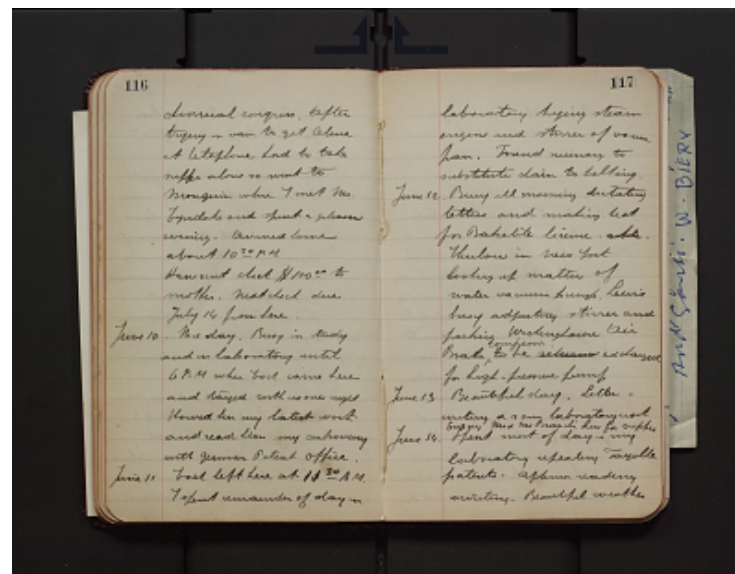 116
congress. After
trying in vain to get Celine
at telephone had to take
alone so went to
Mouquin where I met Mr.
and spent a pleasant
evening. Arrived home
about 10 30 P.M.
Have sent check $100 00 to
mother. Next check due
July 14 from here.
June 10. Nice day. Busy in study
and in laboratory until
6 P.M. when came here
and stayed with us over night
Showed him my latest work
and read him my controversy
with German Patent Office.
June 11 left here at A.M.
I spent remainder of day in
117
laboratory trying steam
engine and stirrer of vacuum
pan. Found necessary to
substitute chain to belting.
June 12. Busy all morning dictating
letters and making text
for Bakelite license.
Thurlow in New York
looking up matter of
water vacuum pump. Lewis
busy adjusting stirrer and
packing Westinghouse Air
Brake compressor to be exchanged
for high-pressure pump
June 13 Beautiful day. Letter-
writing and some laboratory work
Mr & Mrs here for supper
June 14. Spent most of day in my
laboratory repeating
patents. Afternoon reading
writing. Beautiful weather
W. BIERY